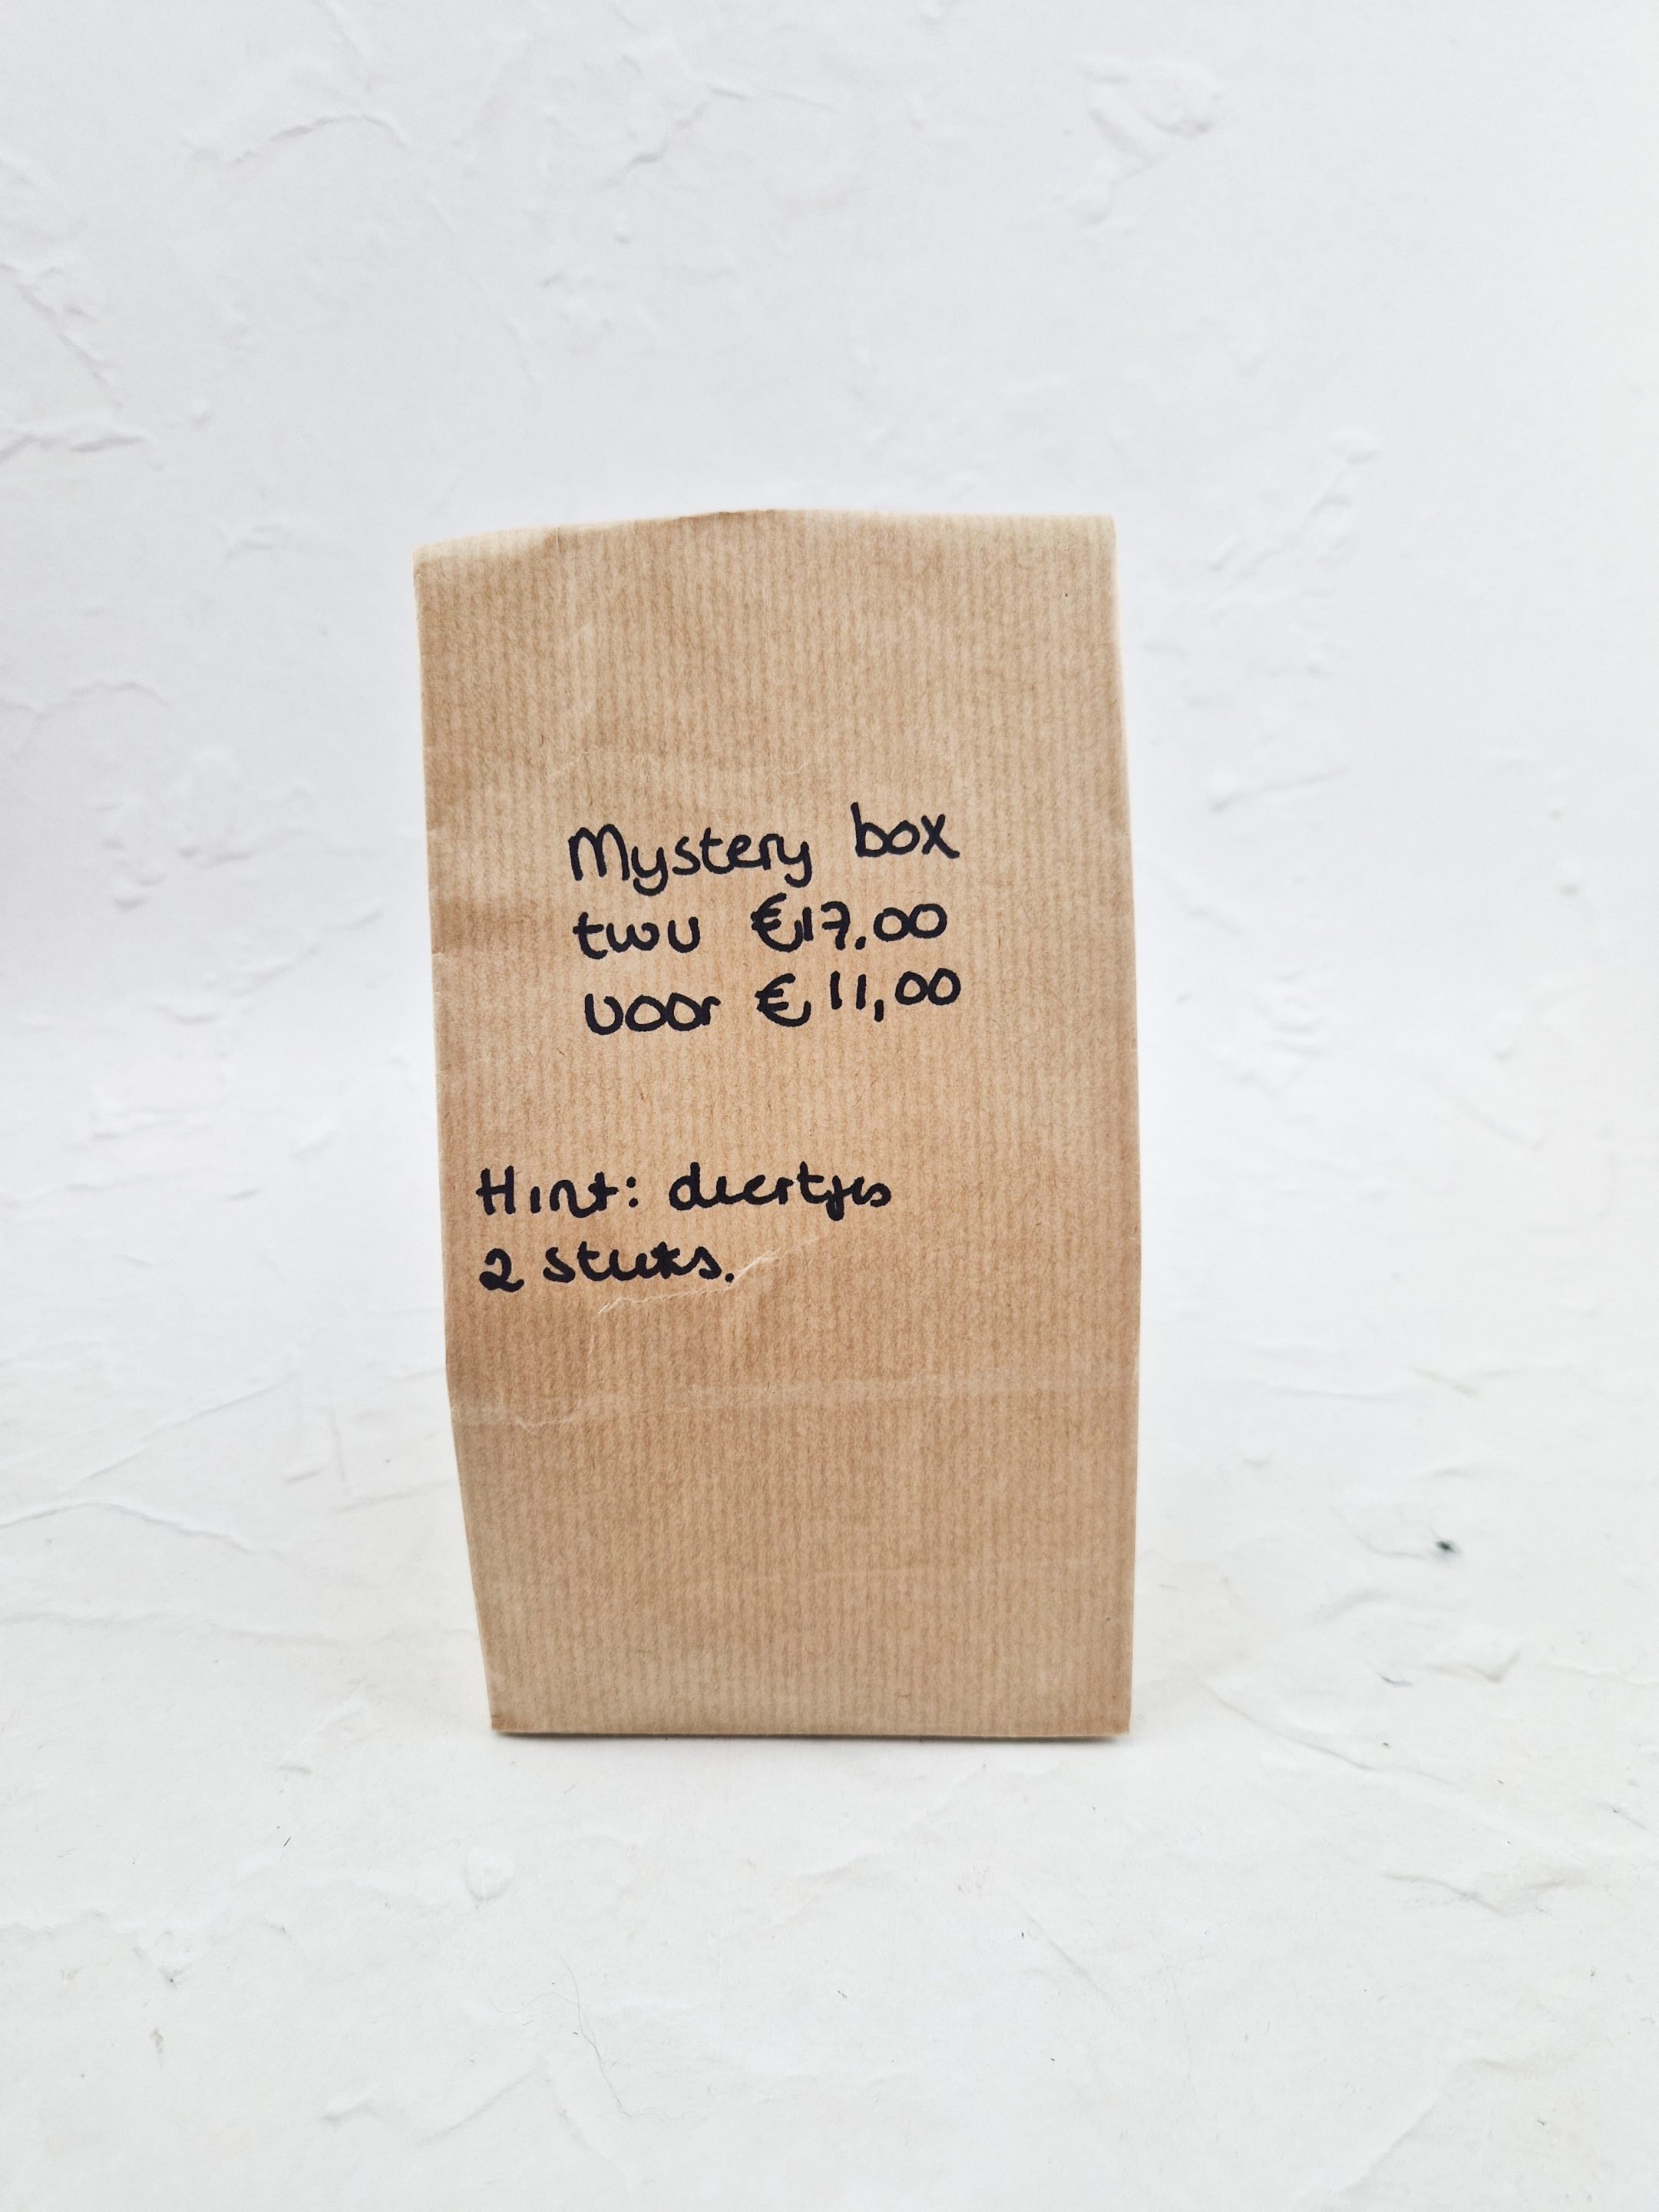 Mystery box
twv €17.00
voor €11,00
Hint: diertjes
2 stuks.